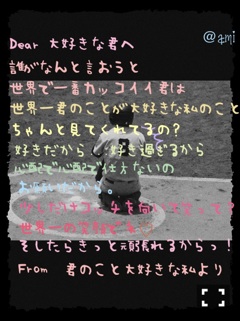 @ami
Dear 大好きな君へ
誰がなんと言おうと
世界で一番カッコイイ君は
世界一君のことが大好きな私のこと
ちゃんと見てくれてるの?
好きだから 好き過ぎるから
心配で心配で仕方ないの
お願いだから。
少しだけコッチを向いて笑って?
世界一の笑顔でね
そしたらきっと頑張れるからっ!
From 君のこと大好きな私より